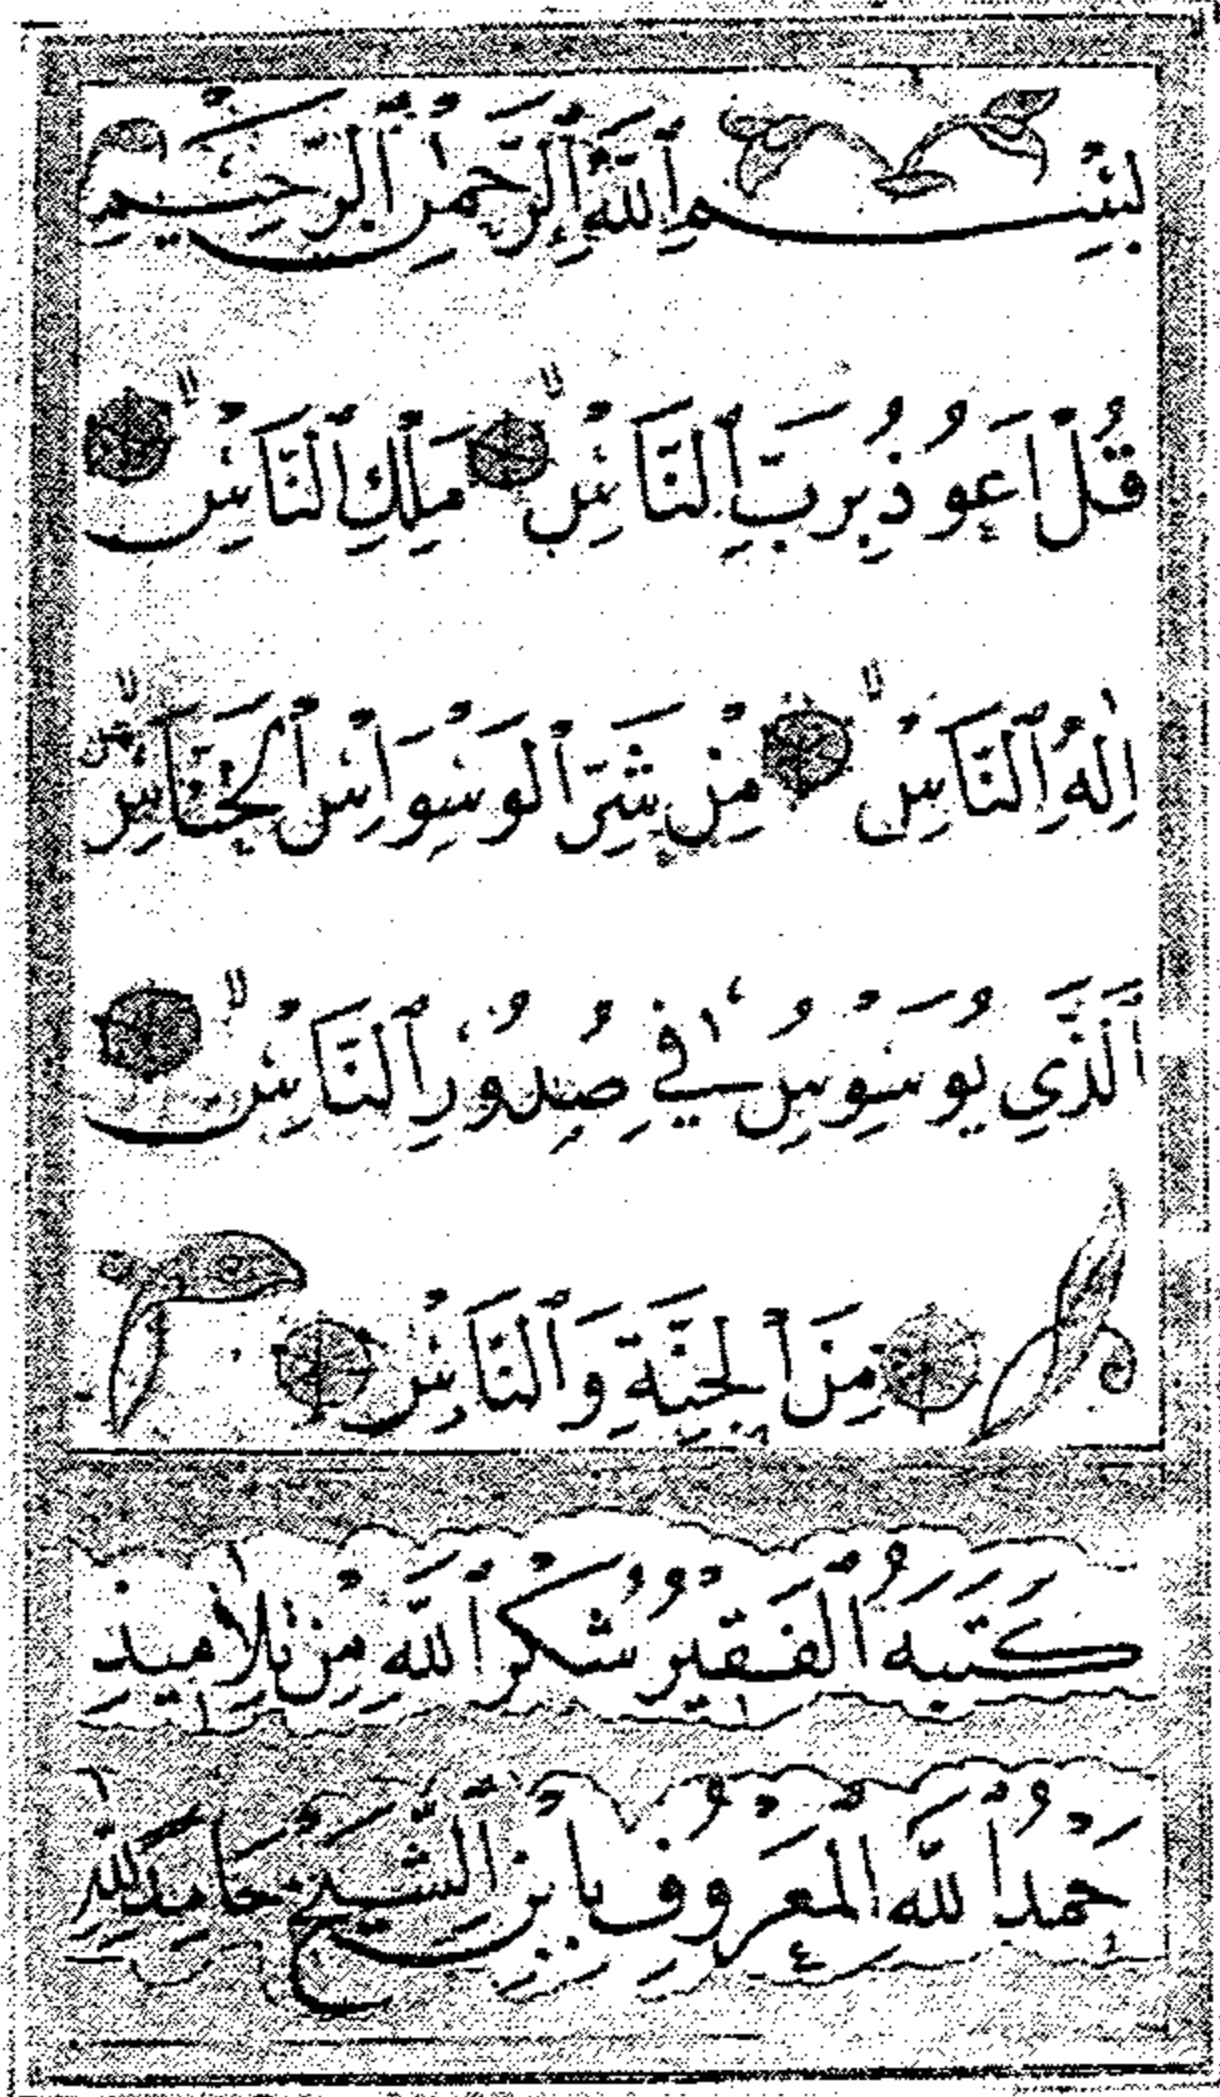 بِسْمِ ٱللّٰهِ ٱلرَّحْمٰنِ ٱلرَّحِيمِ
قُلْ اَعُوذُ بِرَبِّ ٱلنَّاسِۙ مَلِكِ ٱلنَّاسِۙ
اِلٰهِ ٱلنَّاسِۙ مِنْ شَرِّ ٱلْوَسْوَاسِ ٱلْخَنَّاسِۙ
ٱلَّذِي يُوَسْوِسُ فِي صُدُورِ ٱلنَّاسِۙ
مِنَ ٱلْجِنَّةِ وَٱلنَّاسِ
كَتَبَهُ ٱلْفَقِيرُ شُكْرُ ٱللّٰهِ مِنْ تَلَامِيذِ
حَمْدُ ٱللّٰهِ ٱلْمَعْرُوفُ بِابْنِ ٱلشَّيْخِ حَامِدًا لِلّٰهِ